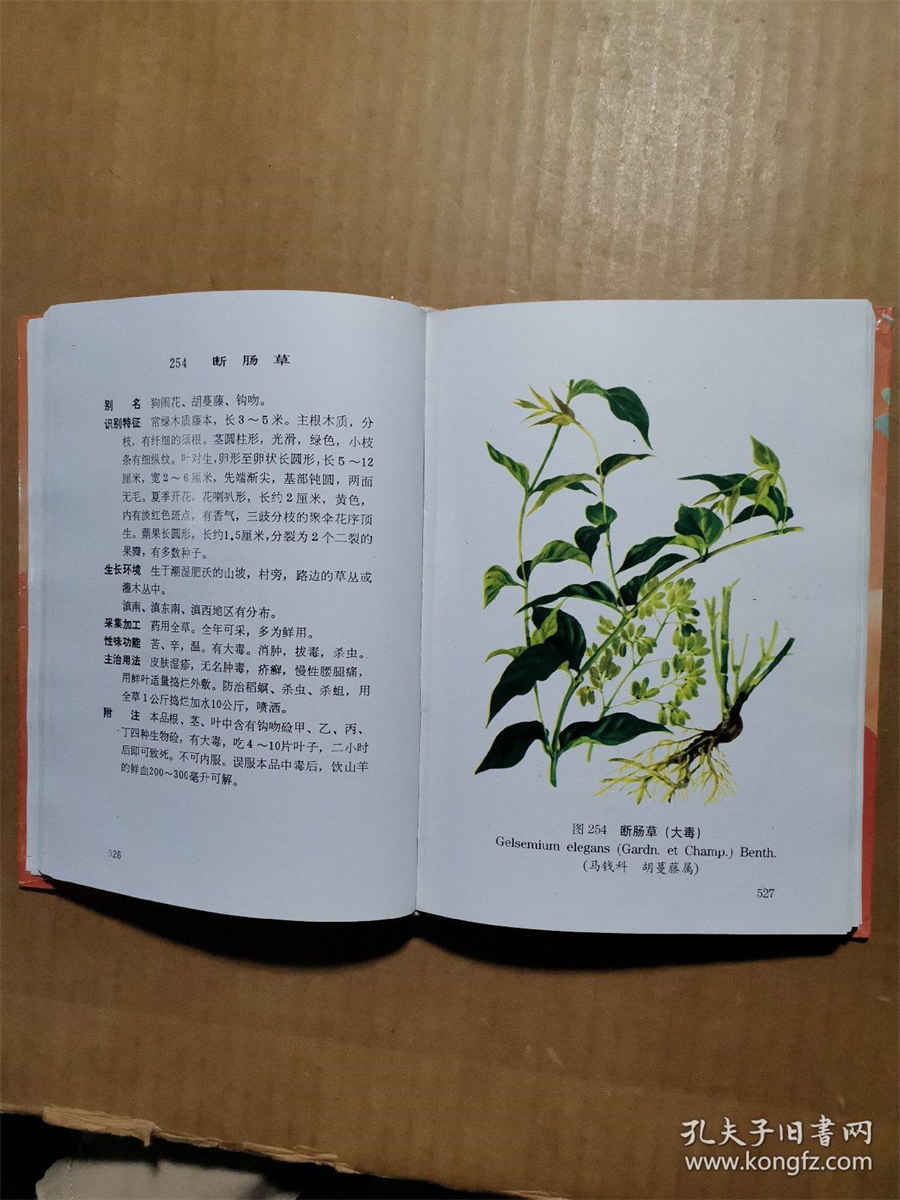 254 断肠草
别名 狗闹花、胡蔓藤、钩吻。
识别特征 常绿木质藤本，长3～5米。主根木质，分
枝，有纤细的须根。茎圆柱形，光滑，绿色，小枝
条有细纵纹。叶对生，卵形至卵状长圆形，长5～12
厘米，宽2～6厘米，先端渐尖，基部钝圆，两面
无毛。夏季开花，花喇叭形，长约2厘米，黄色，
内有淡红色斑点，有香气，三歧分枝的聚伞花序顶
生。蒴果长圆形，长约1.5厘米，分裂为2个二裂的
果瓣，有多数种子。
生长环境 生于潮湿肥沃的山坡，村旁，路边的草丛或
灌木丛中。
滇南、滇东南、滇西地区有分布。
采集加工 药用全草。全年可采，多为鲜用。
性味功能 苦、辛，温。有大毒。消肿，拔毒，杀虫。
主治用法 皮肤湿疹，无名肿毒，疥癣，慢性腰腿痛，
用鲜叶适量捣烂外敷。防治稻螟、杀虫、杀蛆，用
全草1公斤捣烂加水10公斤，喷洒。
附注 本品根、茎、叶中含有钩吻硷甲、乙、丙、
丁四种生物硷，有大毒，吃4～10片叶子，二小时
后即可致死。不可内服。误服本品中毒后，饮山羊
的鲜血200～300毫升可解。
526
图254 断肠草（大毒）
Gelsemium elegans (Gardn. et Champ.) Benth.
（马钱科 胡蔓藤属）
527
孔夫子旧書网
www.kongfz.com